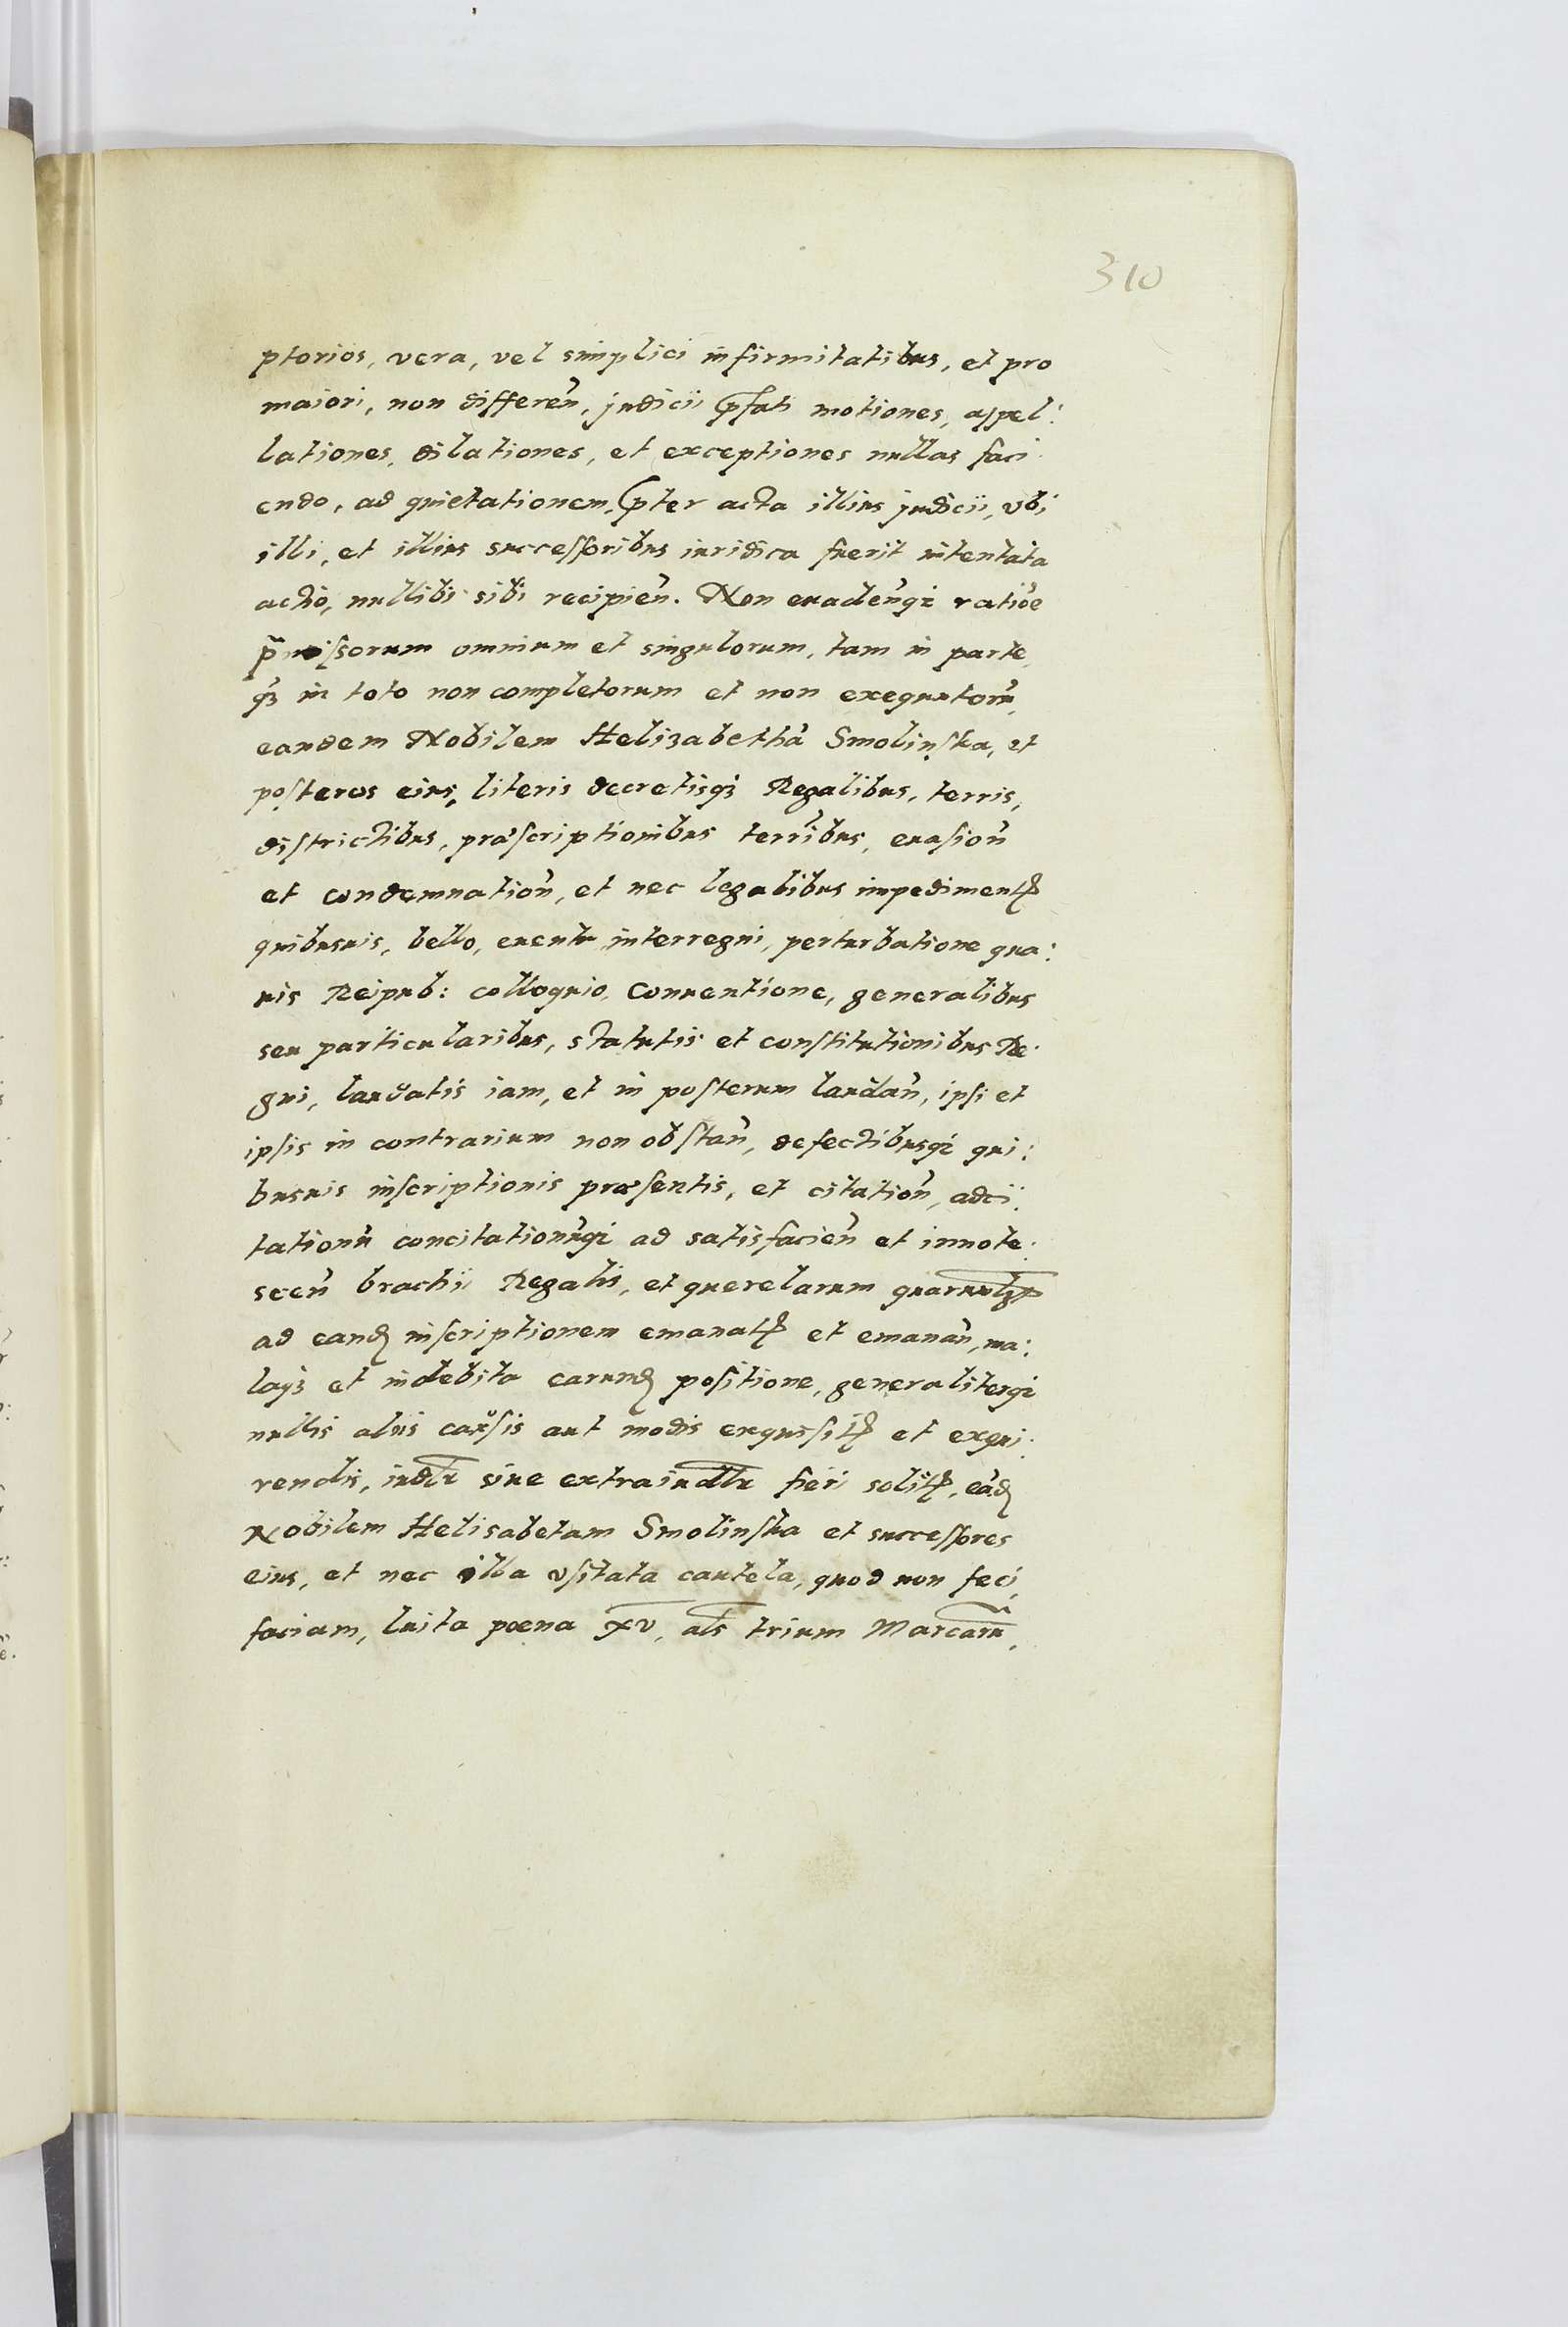 310
ptorios, vera, vel simplici infirmitatibus, et pro
maiori, non differeñ, judicii p̃fati motiones, appel:
lationes, dilationes, et exceptiones nullas faci
endo, ad quietationem, p̃ter acta illius judicii, vbi
illi, et illius successoribus iuridica fuerit intentata
actio, nullibi sibi recipieñ. Non euadeñqꝫ ratiõe
p̃missorum omnium et singulorum, tam in parte,
q̃ꝫ in toto non completorum et non exequutorũ,
eandem Nobilem Helizabethã Smolinska, et
posteros eius, literis decretisqꝫ Regalibus, terris,
districtibus, præscriptionibus terr̃ibus, euasioñ
et condemnatioñ, et nec legalibus impedimentꝭ
quibusuis, bello, euentu interregni, perturbatione qua:
uis Reipub: colloquio, conuentione, generalibus
seu particularibus, statutis et constitutionibus Re
gni, laudatis iam, et in posterum laudañ, ipsi et
ipsis in contrarium non obstañ, defectibusqꝫ qui:
busuis inscriptionis præsentis, et citatioñ, adci:
tationũ concitationũqꝫ ad satisfacieñ et innote:
sceñ brachii Regalis, et querelarum
ad eandꝭ inscriptionem emanatꝭ et emanañ, ma:
laqꝫ et indebita earundꝭ positione, generaliterqꝫ
nullis aliis causis aut modis exquisitꝭ et exqui:
rendis, iudlr siue extraiudlr fieri solitꝭ, eãdꝭ
Nobilem Helisabetam Smolinska et successores
eius, et nec illa vsitata cautela, quod non feci,
faciam, luita poena xv, als trium Marcarũ,